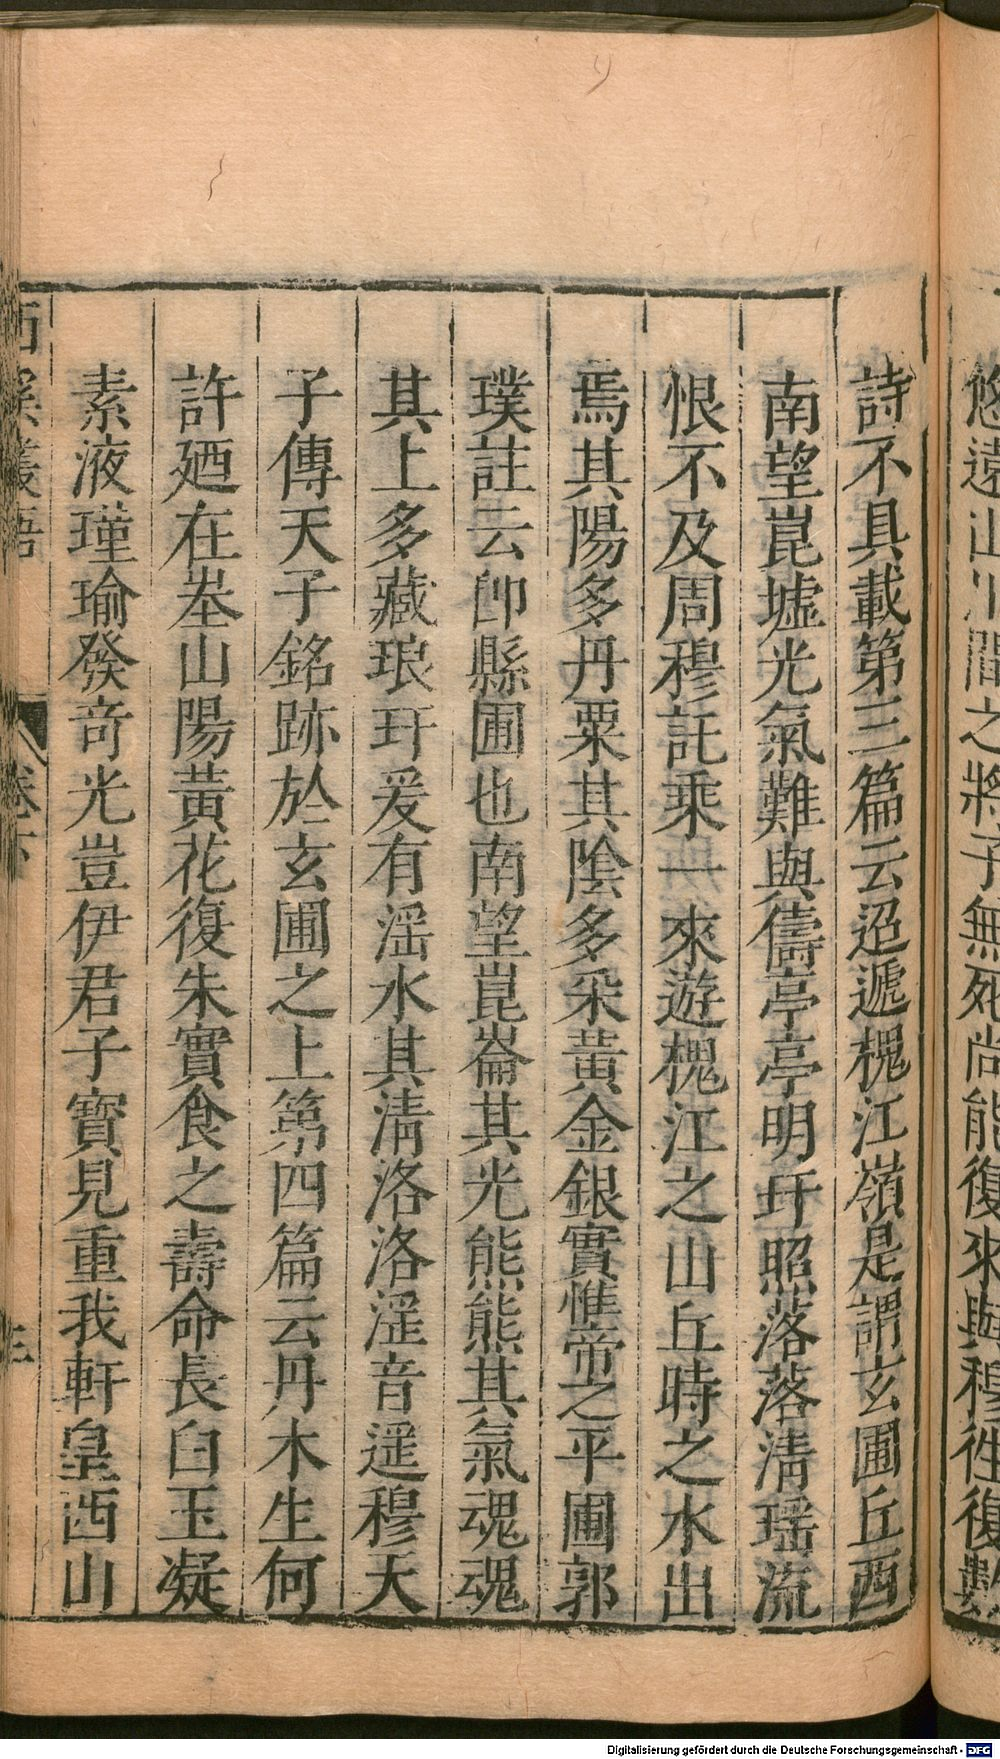 詩不具載第三篇云迢遞槐江嶺是謂玄圃丘西
南望崑墟光氣難與儔亭亭明玕照落落淸瑶流
恨不及周穆託乘一來遊槐江之山丘時之水出
焉其陽多丹粟其陰多采黃金銀實惟帝之平圃郭
璞註云卽縣圃也南望崑崙其光熊熊其氣魂魂
其上多藏琅玕爰有滛水其淸洛洛滛音遥穆天
子傳天子銘跡於玄圃之上第四篇云丹木生何
許廼在峚山陽黃花復朱實食之壽命長白玉凝
素液瑾瑜發奇光豈伊君子寶見重我軒皇西山
西溪叢語
卷下
Digitalisierung gefördert durch die Deutsche Forschungsgemeinschaft - DFG